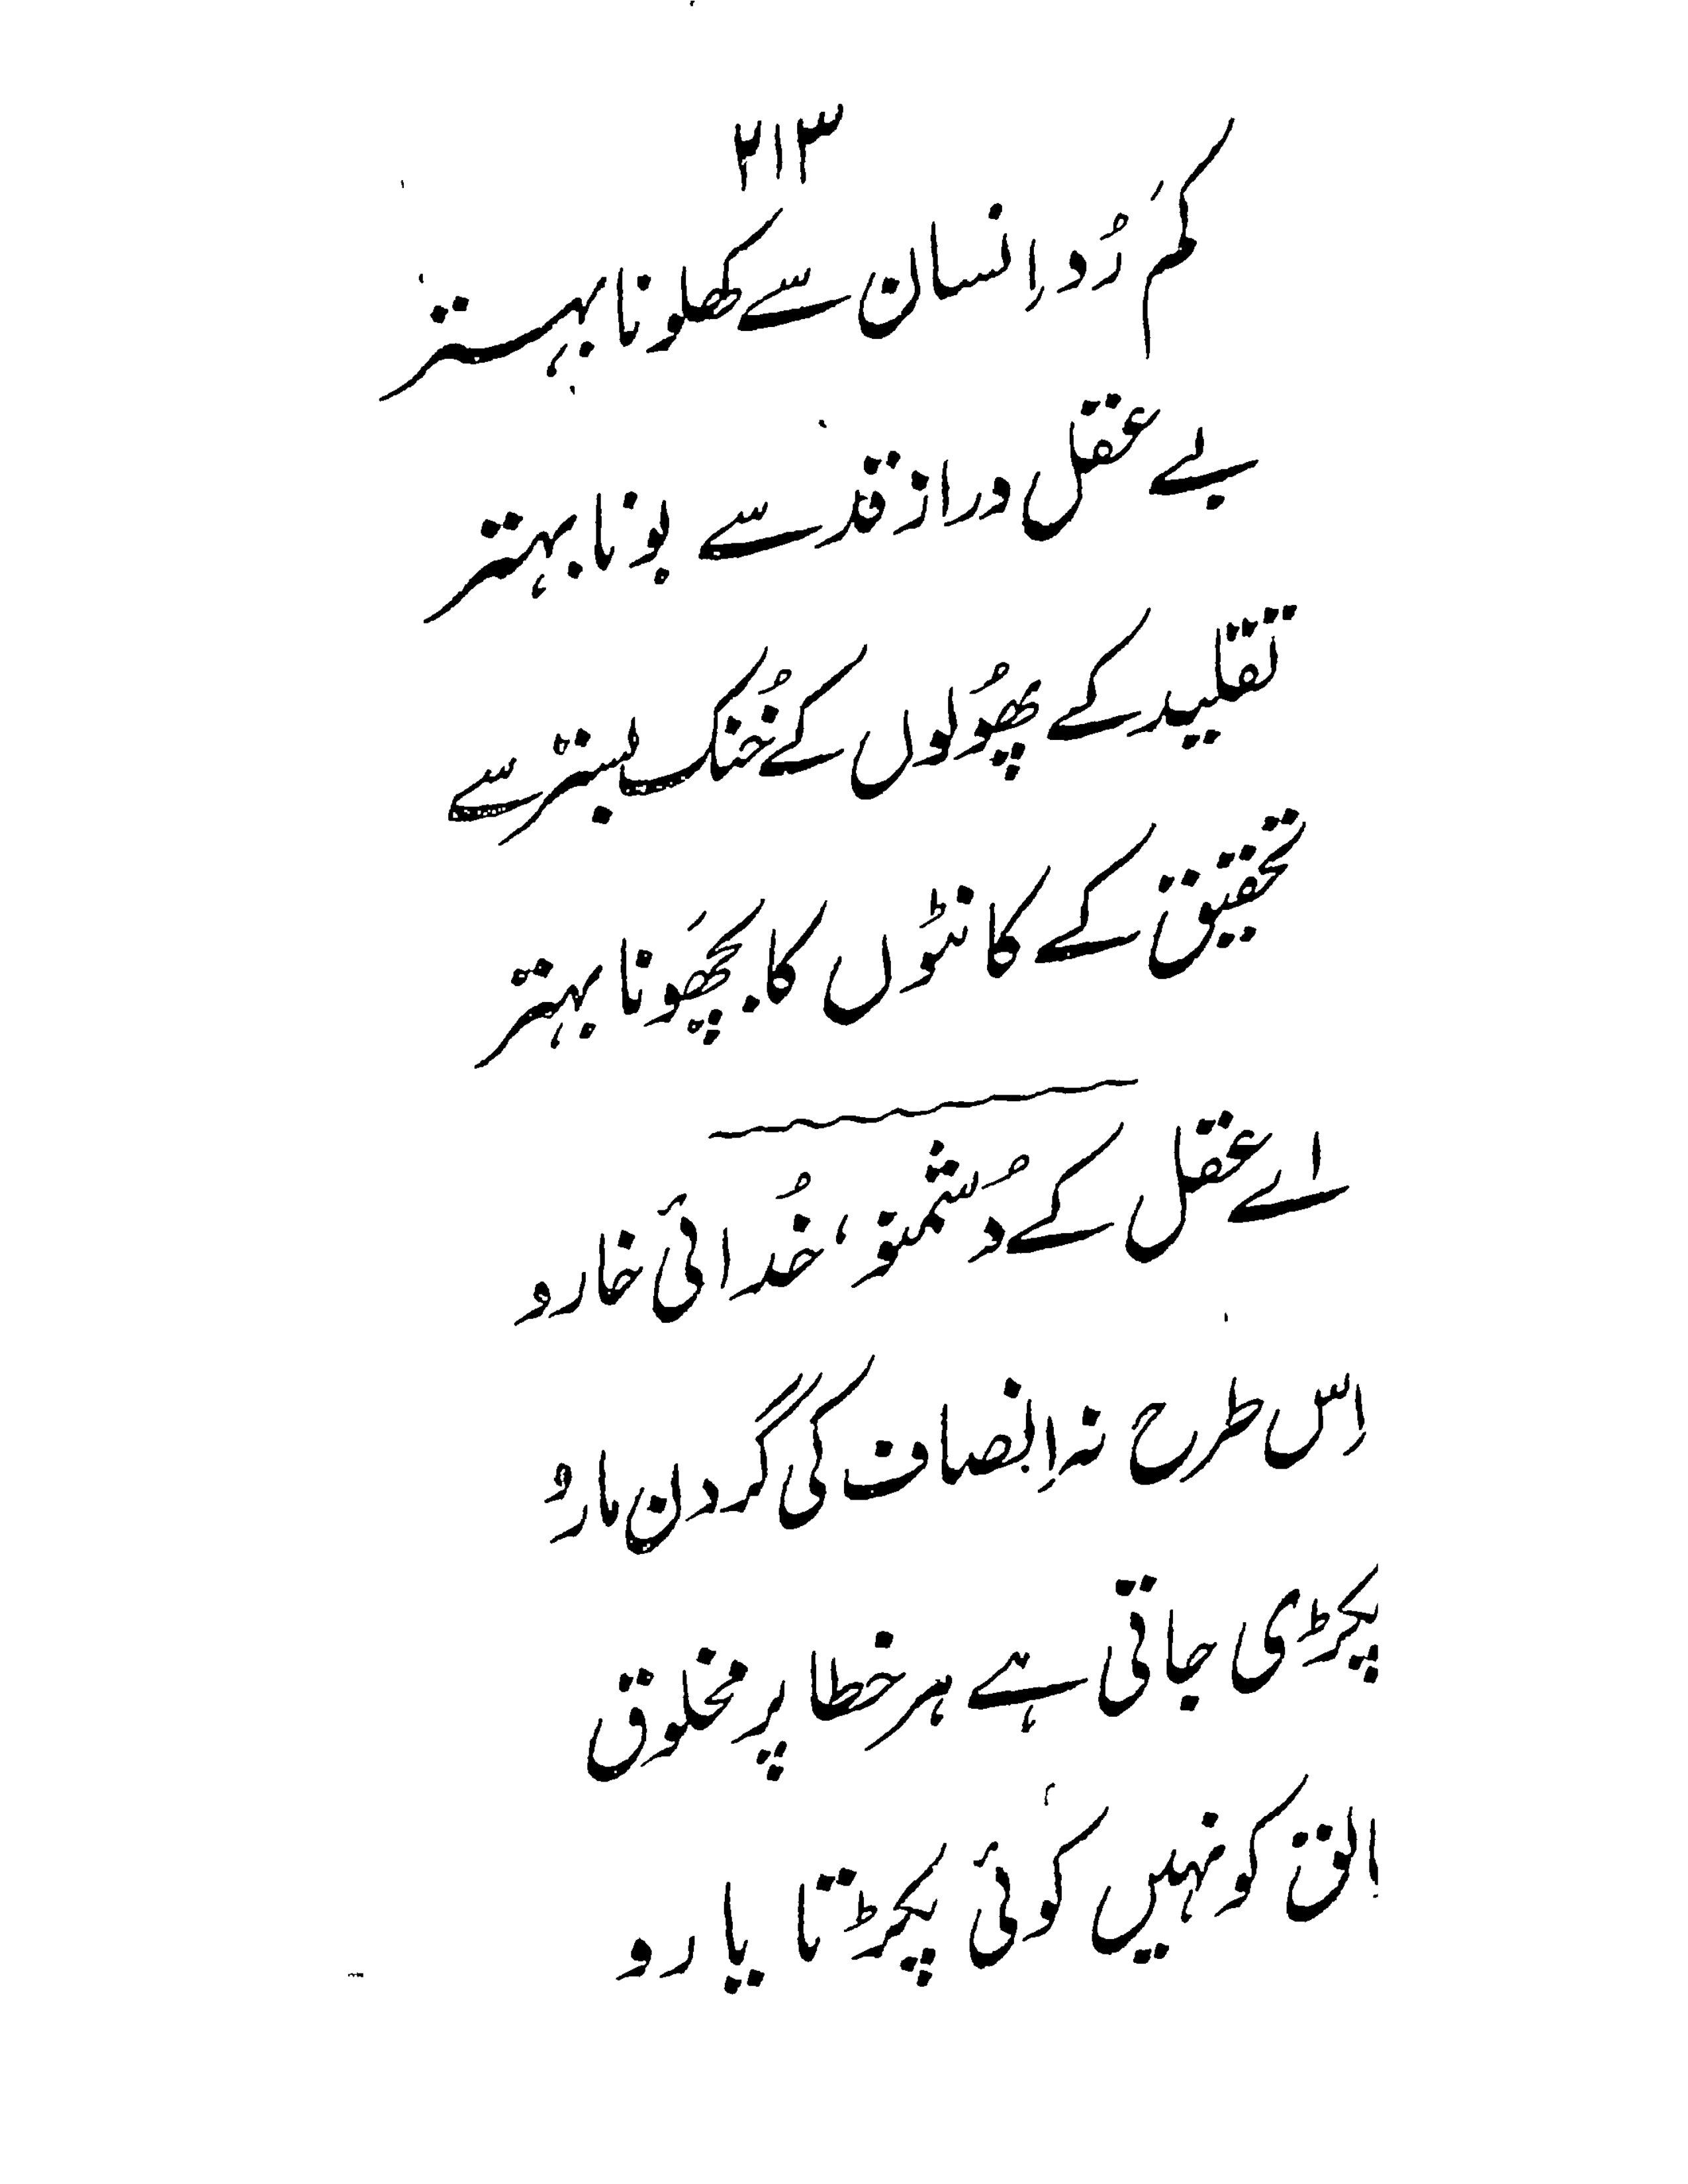 ۲۱۳
کمَ رُو اِنسان سے کھلونا بہتر
بے عقل دراز قد سے بونا بہتر
تقلید کے پھوُلوں کے خُنک بستر سے
تحقیق کے کانٹوں کا بچھَونا بہتر
اے عقل کے دُشمنو، خُدائی خارو
اِس طرح نہ اِنصاف کی گردن مارو
پکڑی جاتی ہے ہر خطا پر مخلوق
الق کو نہیں کوئی پکڑتا یارو